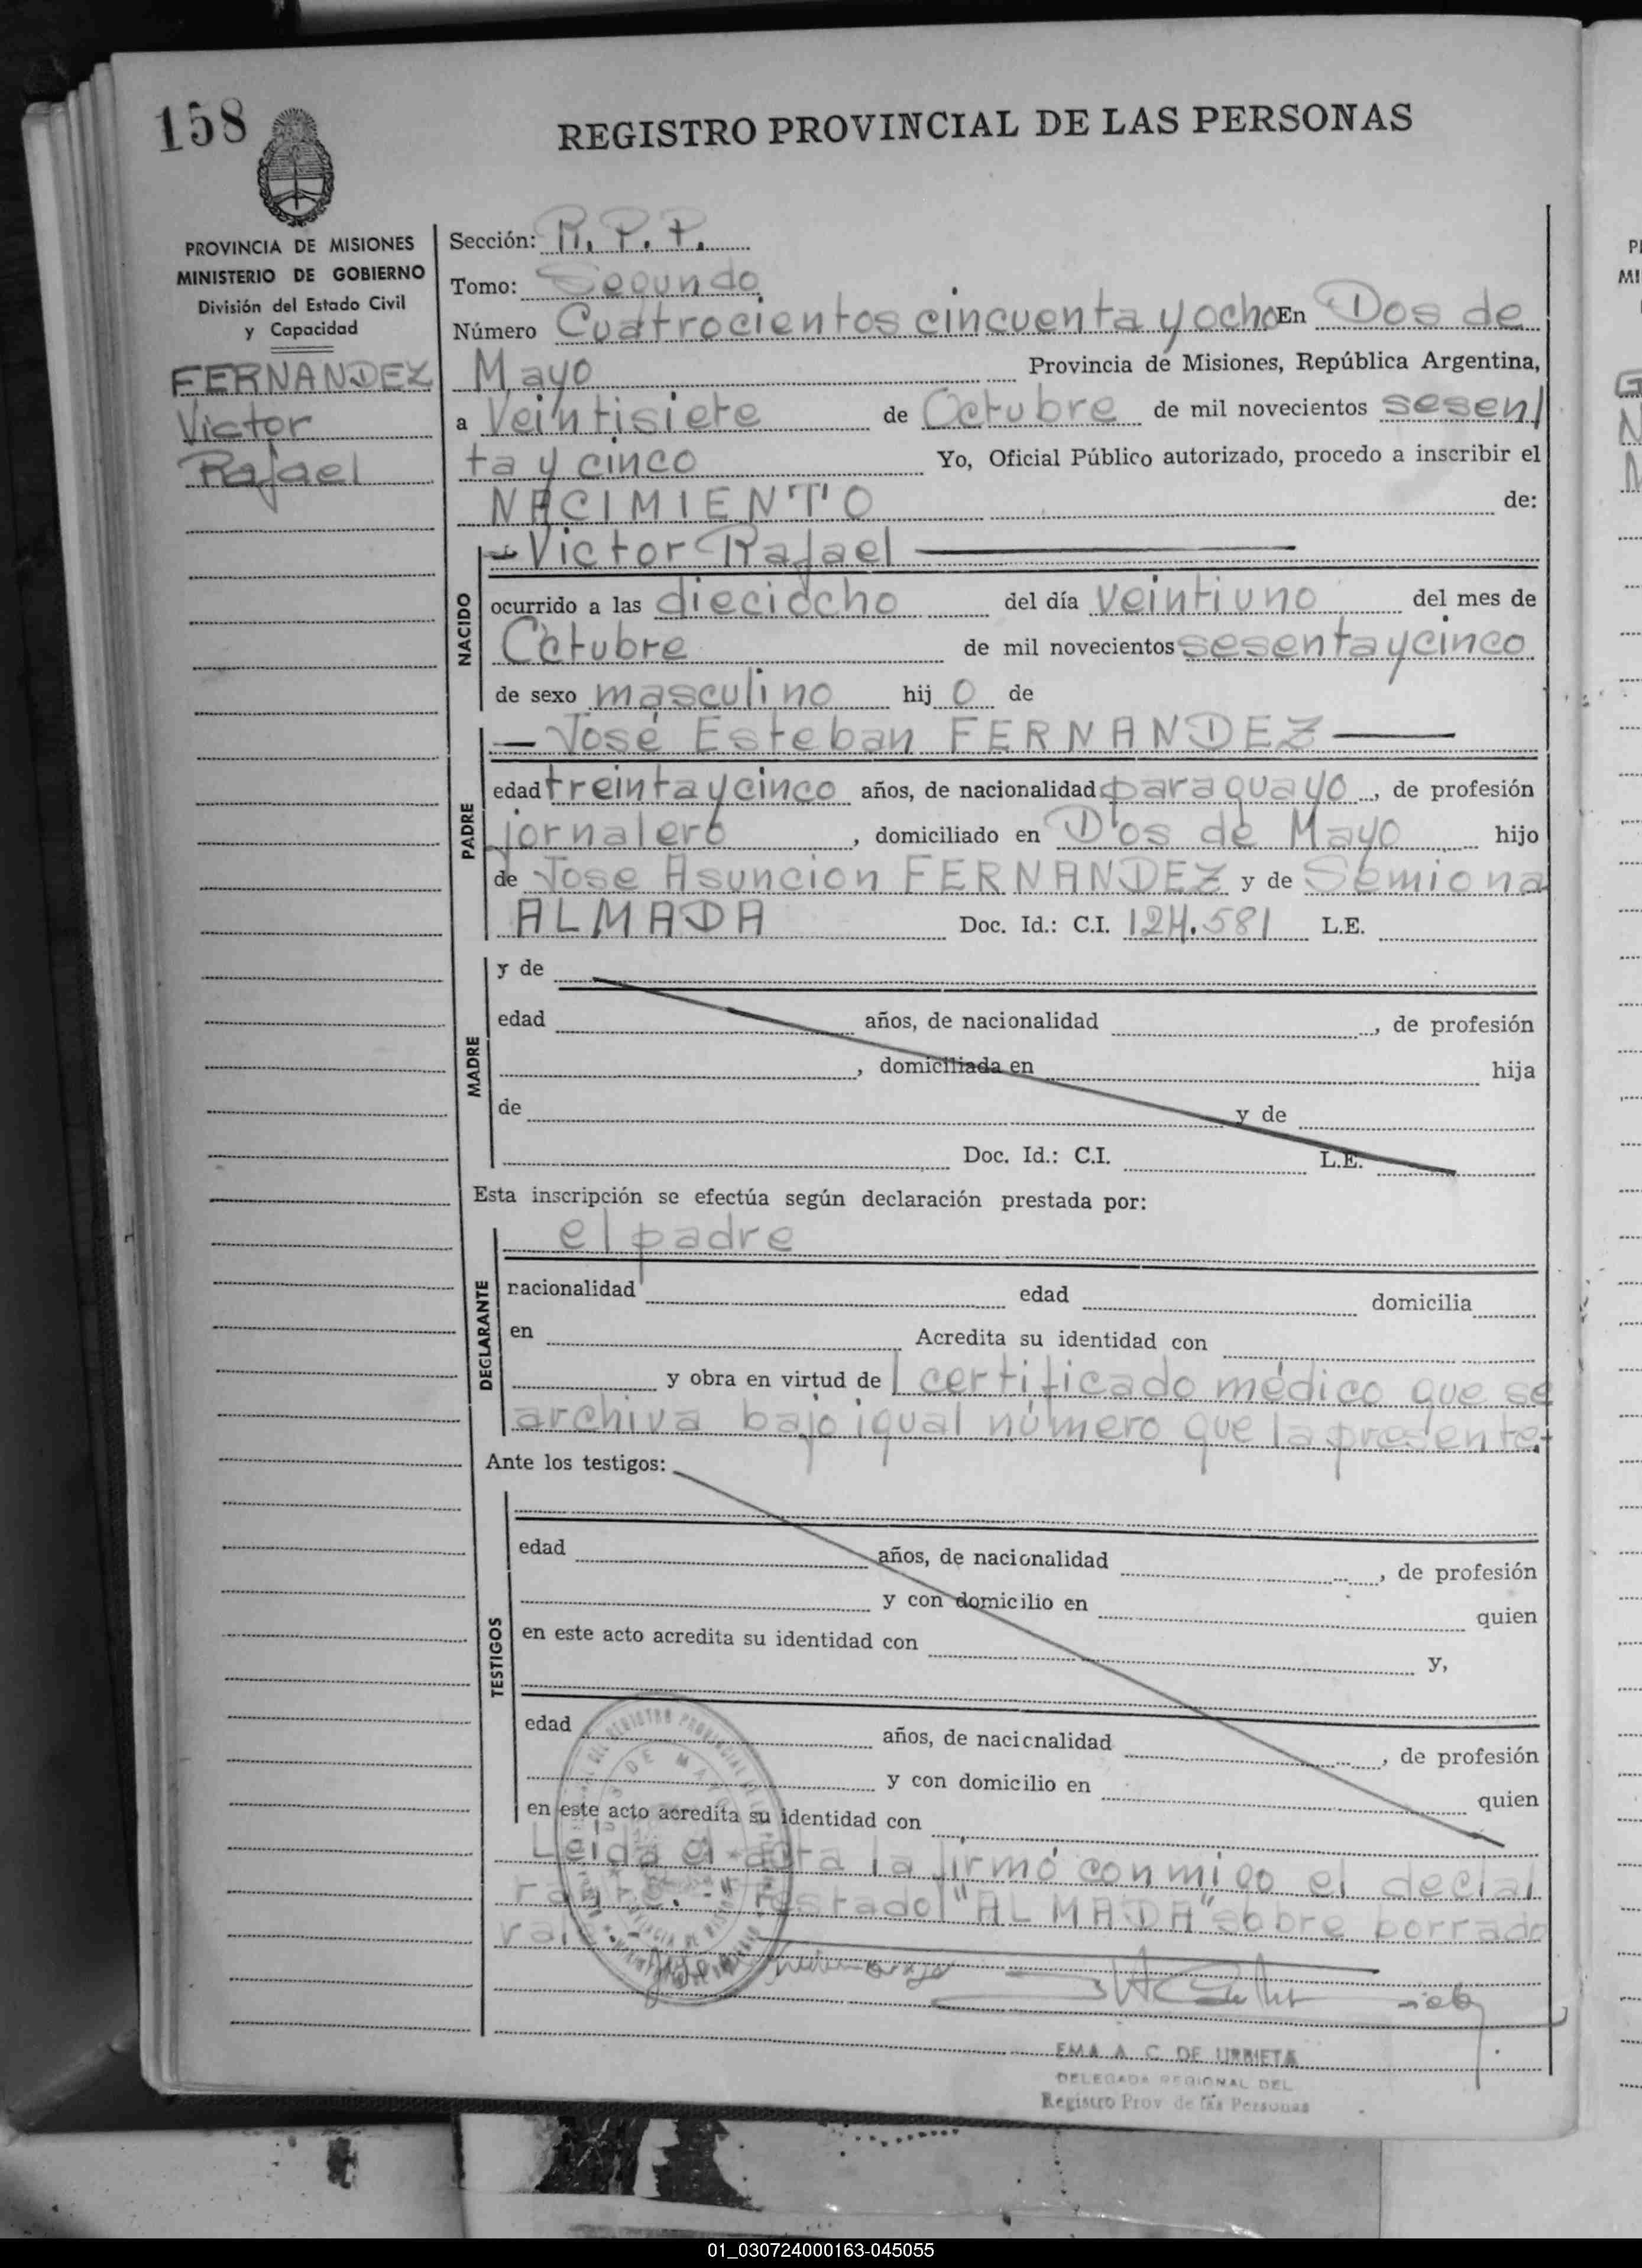 158
REGISTRO PROVINCIAL DE LAS PERSONAS
PROVINCIA DE MISIONES
MINISTERIO DE GOBIERNO
División del Estado Civil
y Capacidad
FERNANDEZ
Victor
Rafael
Sección: R. P. P.
Tomo: Segundo
Número Cuatrocientos cincuenta y ocho En Dos de
Mayo Provincia de Misiones, República Argentina,
a Veintisiete de Octubre de mil novecientos sesen/
ta y cinco Yo, Oficial Público autorizado, procedo a inscribir el
NACIMIENTO de:
NACIDO
— Victor Rafael —
ocurrido a las dieciocho del día veintiuno del mes de
Octubre de mil novecientos sesenta y cinco
de sexo masculino hij o de
PADRE
— José Esteban FERNANDEZ —
edad treinta y cinco años, de nacionalidad paraguayo, de profesión
jornalero, domiciliado en Dos de Mayo hijo
de Jose Asuncion FERNANDEZ y de Semiona
ALMADA Doc. Id.: C.I. 124.581 L.E.
MADRE
y de
edad años, de nacionalidad , de profesión
, domiciliada en hija
de y de
Doc. Id.: C.I. L.E.
Esta inscripción se efectúa según declaración prestada por:
DECLARANTE
el padre
nacionalidad edad domicilia
en Acredita su identidad con
y obra en virtud de l certificado médico que se
archiva bajo igual número que la presente.-
Ante los testigos:
TESTIGOS
edad años, de nacionalidad , de profesión
y con domicilio en quien
en este acto acredita su identidad con y,
edad años, de nacionalidad , de profesión
y con domicilio en quien
en este acto acredita su identidad con
Leida el acta la firmó conmigo el decla/
rante.- Testado/ "ALMADA" sobre borrado
vale.-
EMA A. C. DE URBIETA
DELEGADA REGIONAL DEL
Registro Prov de las Personas
01_030724000163-045055